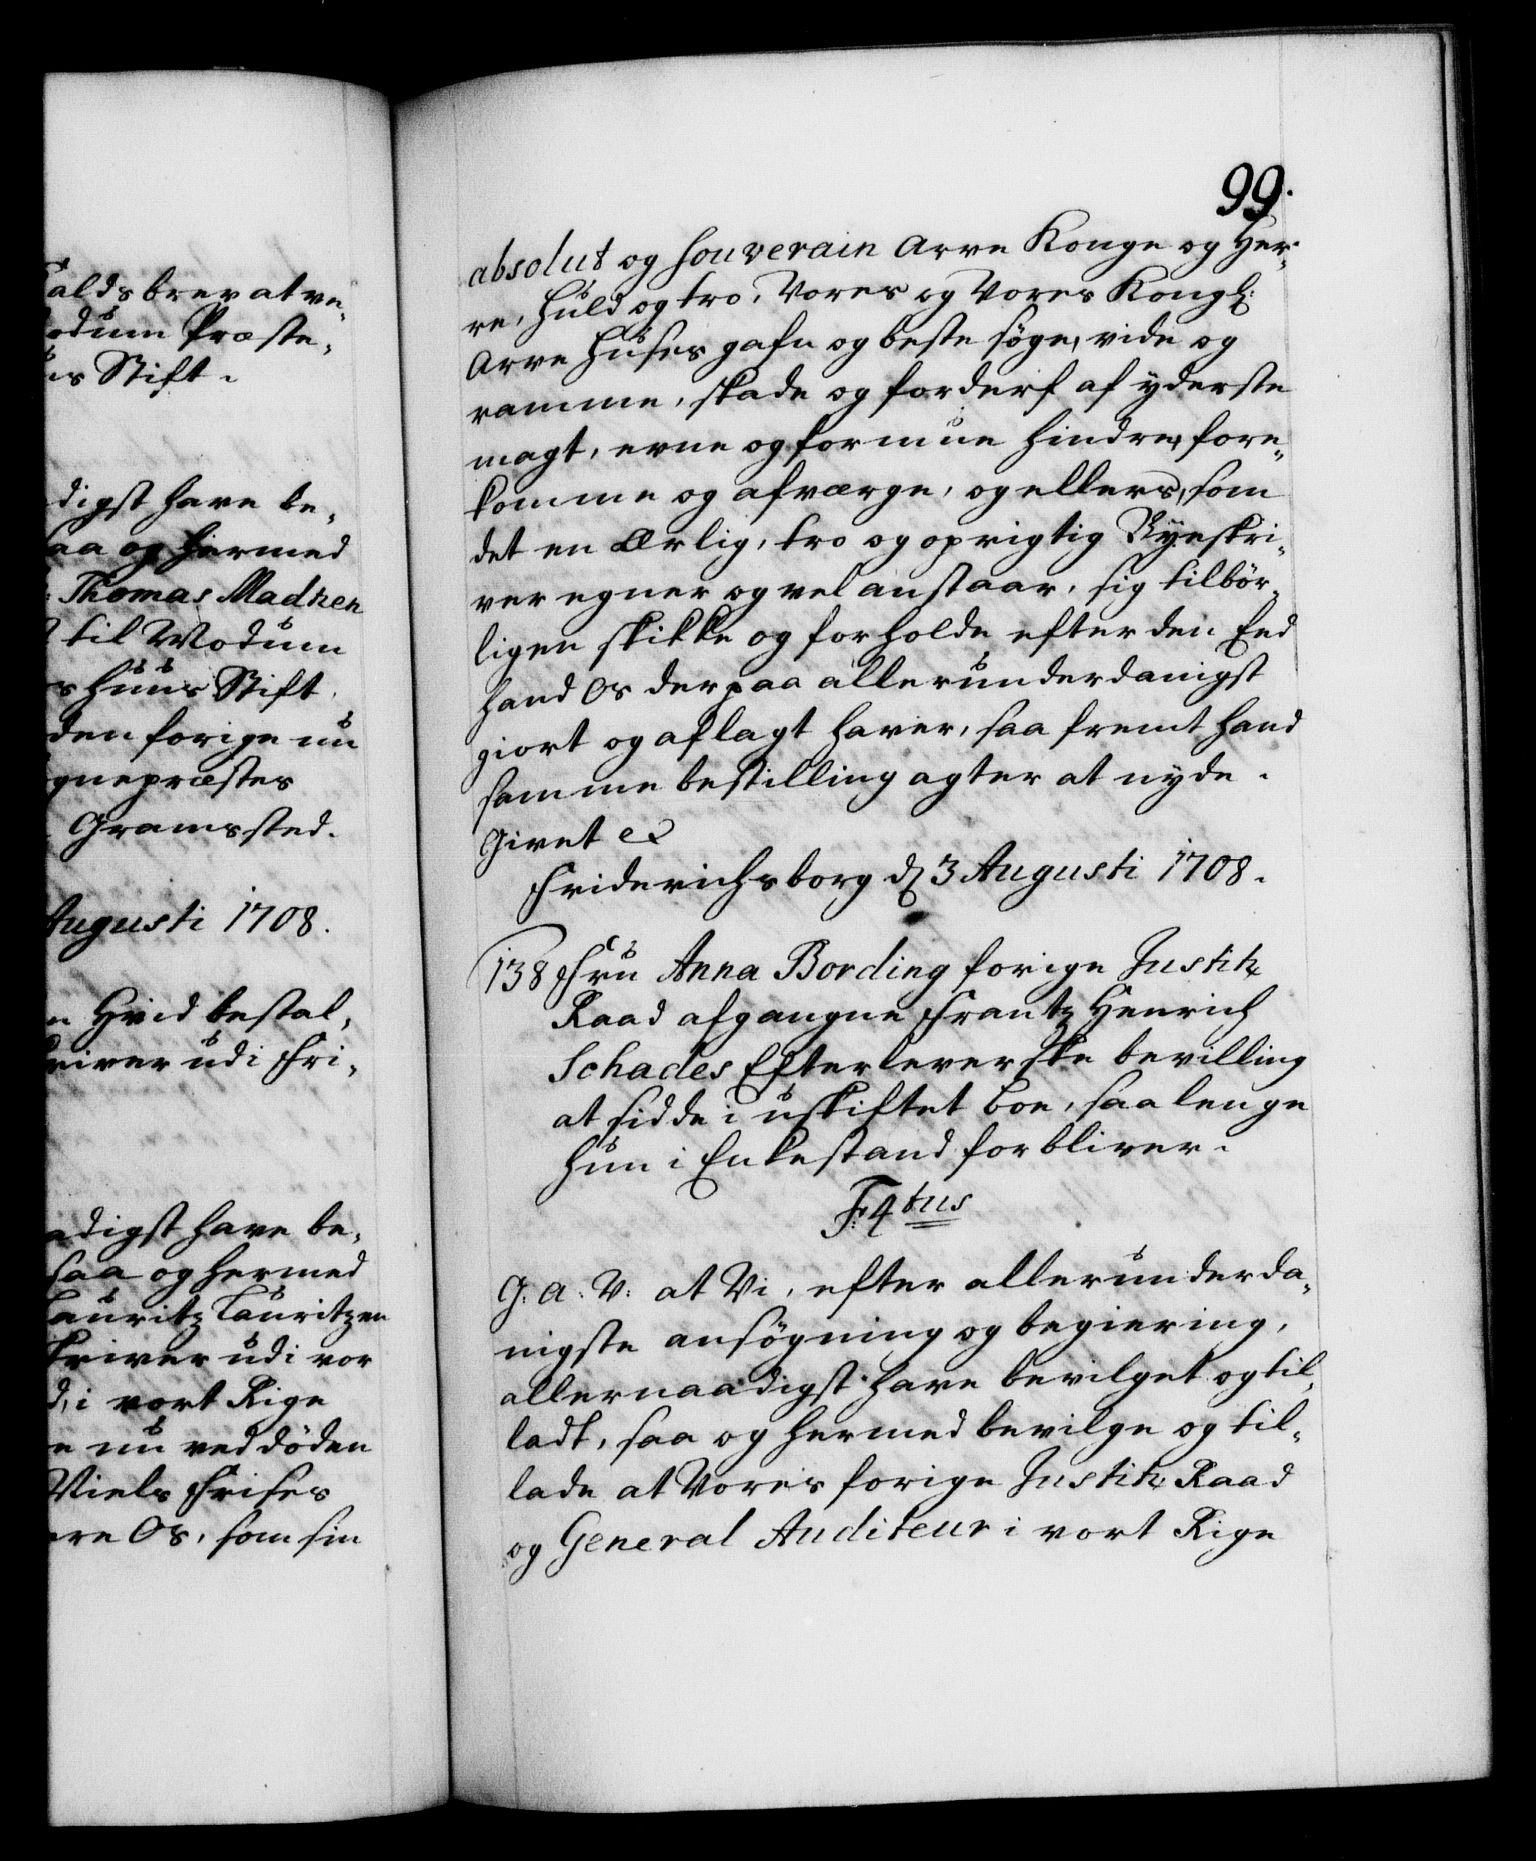 alds brev at ve¬
odum Præste¬
us Stift.
digst have be¬
saa og hermed
Thomas Madzen
til Modum
s huus Stift
den forige nu
gnepræstes
Gramssted.
Augusti 1708.
n Hvid bestal¬
river udi Fri¬
adigst have be¬
saa og hermed
Lauritz Lauritzen
skriver udi vor
d, i vort Rige
e nu ved döden
Niels Frises
ere Os, som sin
99.
absolut og souverain Arve Konge og Her¬
re, huld og tro, Vores og Vores Kongl:
Arve Huses gafn og beste söge, vide og
ramme, skade og forderf af yderste
magt, evne og formue hindre, fore¬
komme og afværge, og ellers, som
det en Ærlig, tro og oprigtig Byeskri¬
ver egner og vel anstaar, sig tilbör¬
ligen skikke og forholde efter den Eed
hand Os derpaa allerunderdanigst
giort og aflagt haver, saa fremt hand
samme bestilling agter at nyde.
Givet etc
Friderichsborg d 3 Augusti 1708.
138 Fru Anna Bording forige Justitz
Raad afgangne Frantz Henrich
Schades Efterleverske bevilling
at sidde i uskiftet boe, saa lenge
hun i Enkestand forbliver.
F: 4tus
G: A: V: at Vi, efter allerunderda¬
nigste ansögning og begiering,
allernaadigst have bevilget og til¬
ladt, saa og hermed bevilge og til¬
lade at Voris forige Justitz Raad
og General Auditeur i vort Rige